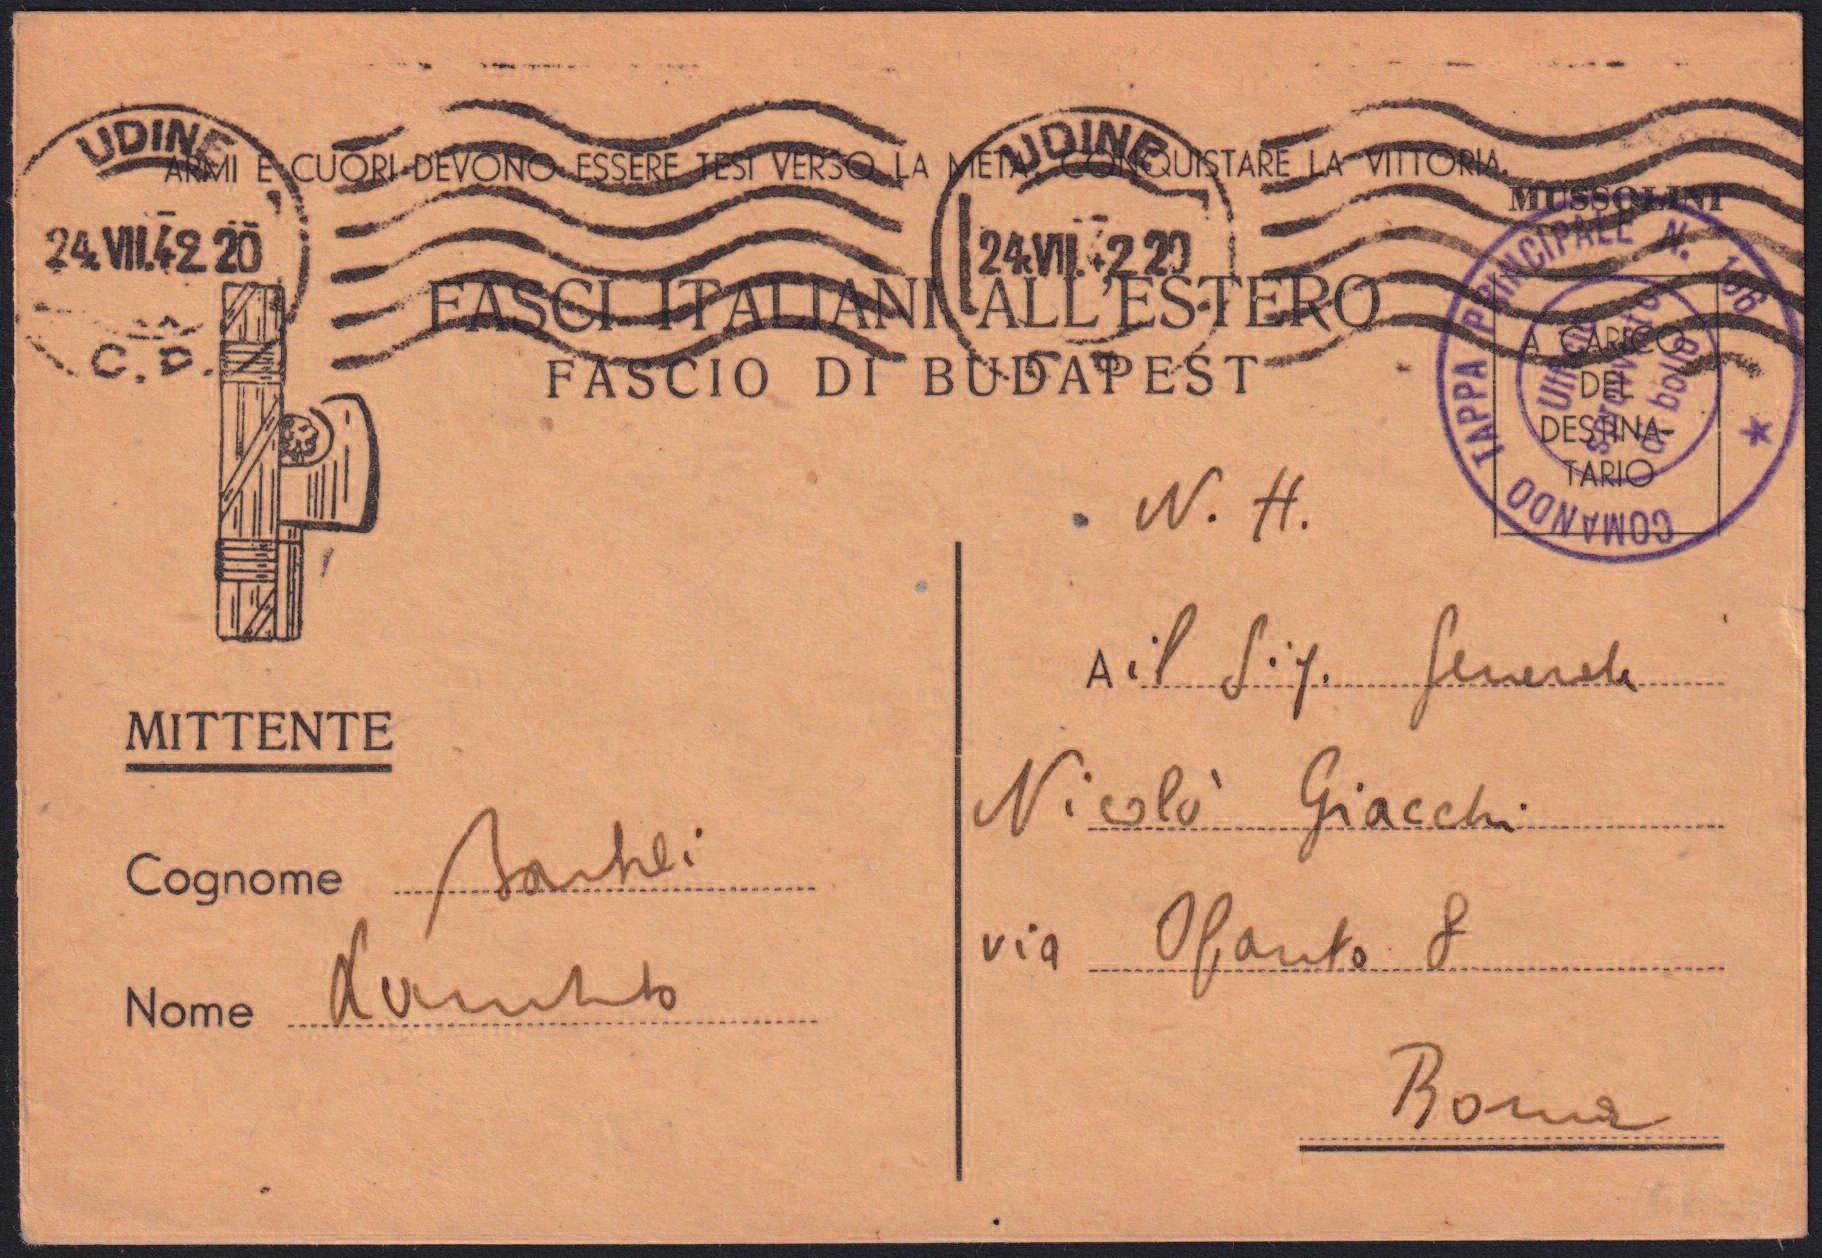 UDINE
24.VII.42 20
C.P.
UDINE
24.VII.42 20
ARMI E CUORI DEVONO ESSERE TESI VERSO LA META: CONQUISTARE LA VITTORIA.
MUSSOLINI
COMANDO TAPPA PRINCIPALE N. 166
Ufficio
sprovvisto
di bollo
A CARICO
DEL
DESTINA-
TARIO
FASCI ITALIANI ALL'ESTERO
FASCIO DI BUDAPEST
MITTENTE
Cognome
Nome
N. H.
A il Sig. Generale
Nicolò Giacchi
via Ofanto 8
Roma